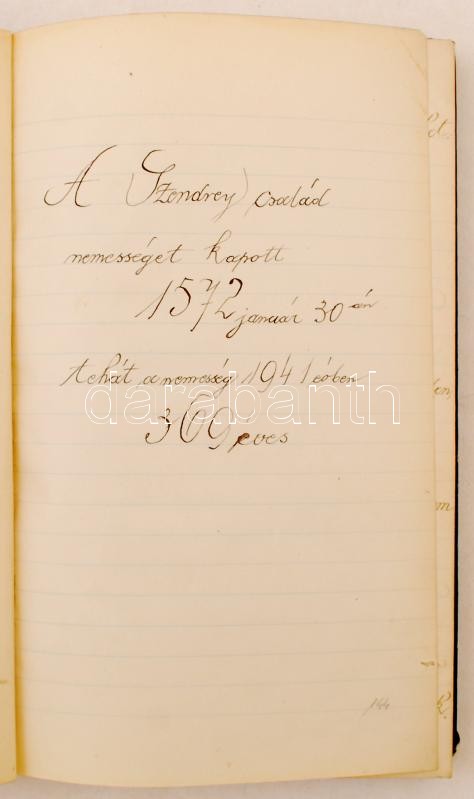 A Szendrey család
nemességet kapott
1572 január 30-án
tehát a nemesség 1941 évben
369 éves
darabanth
144